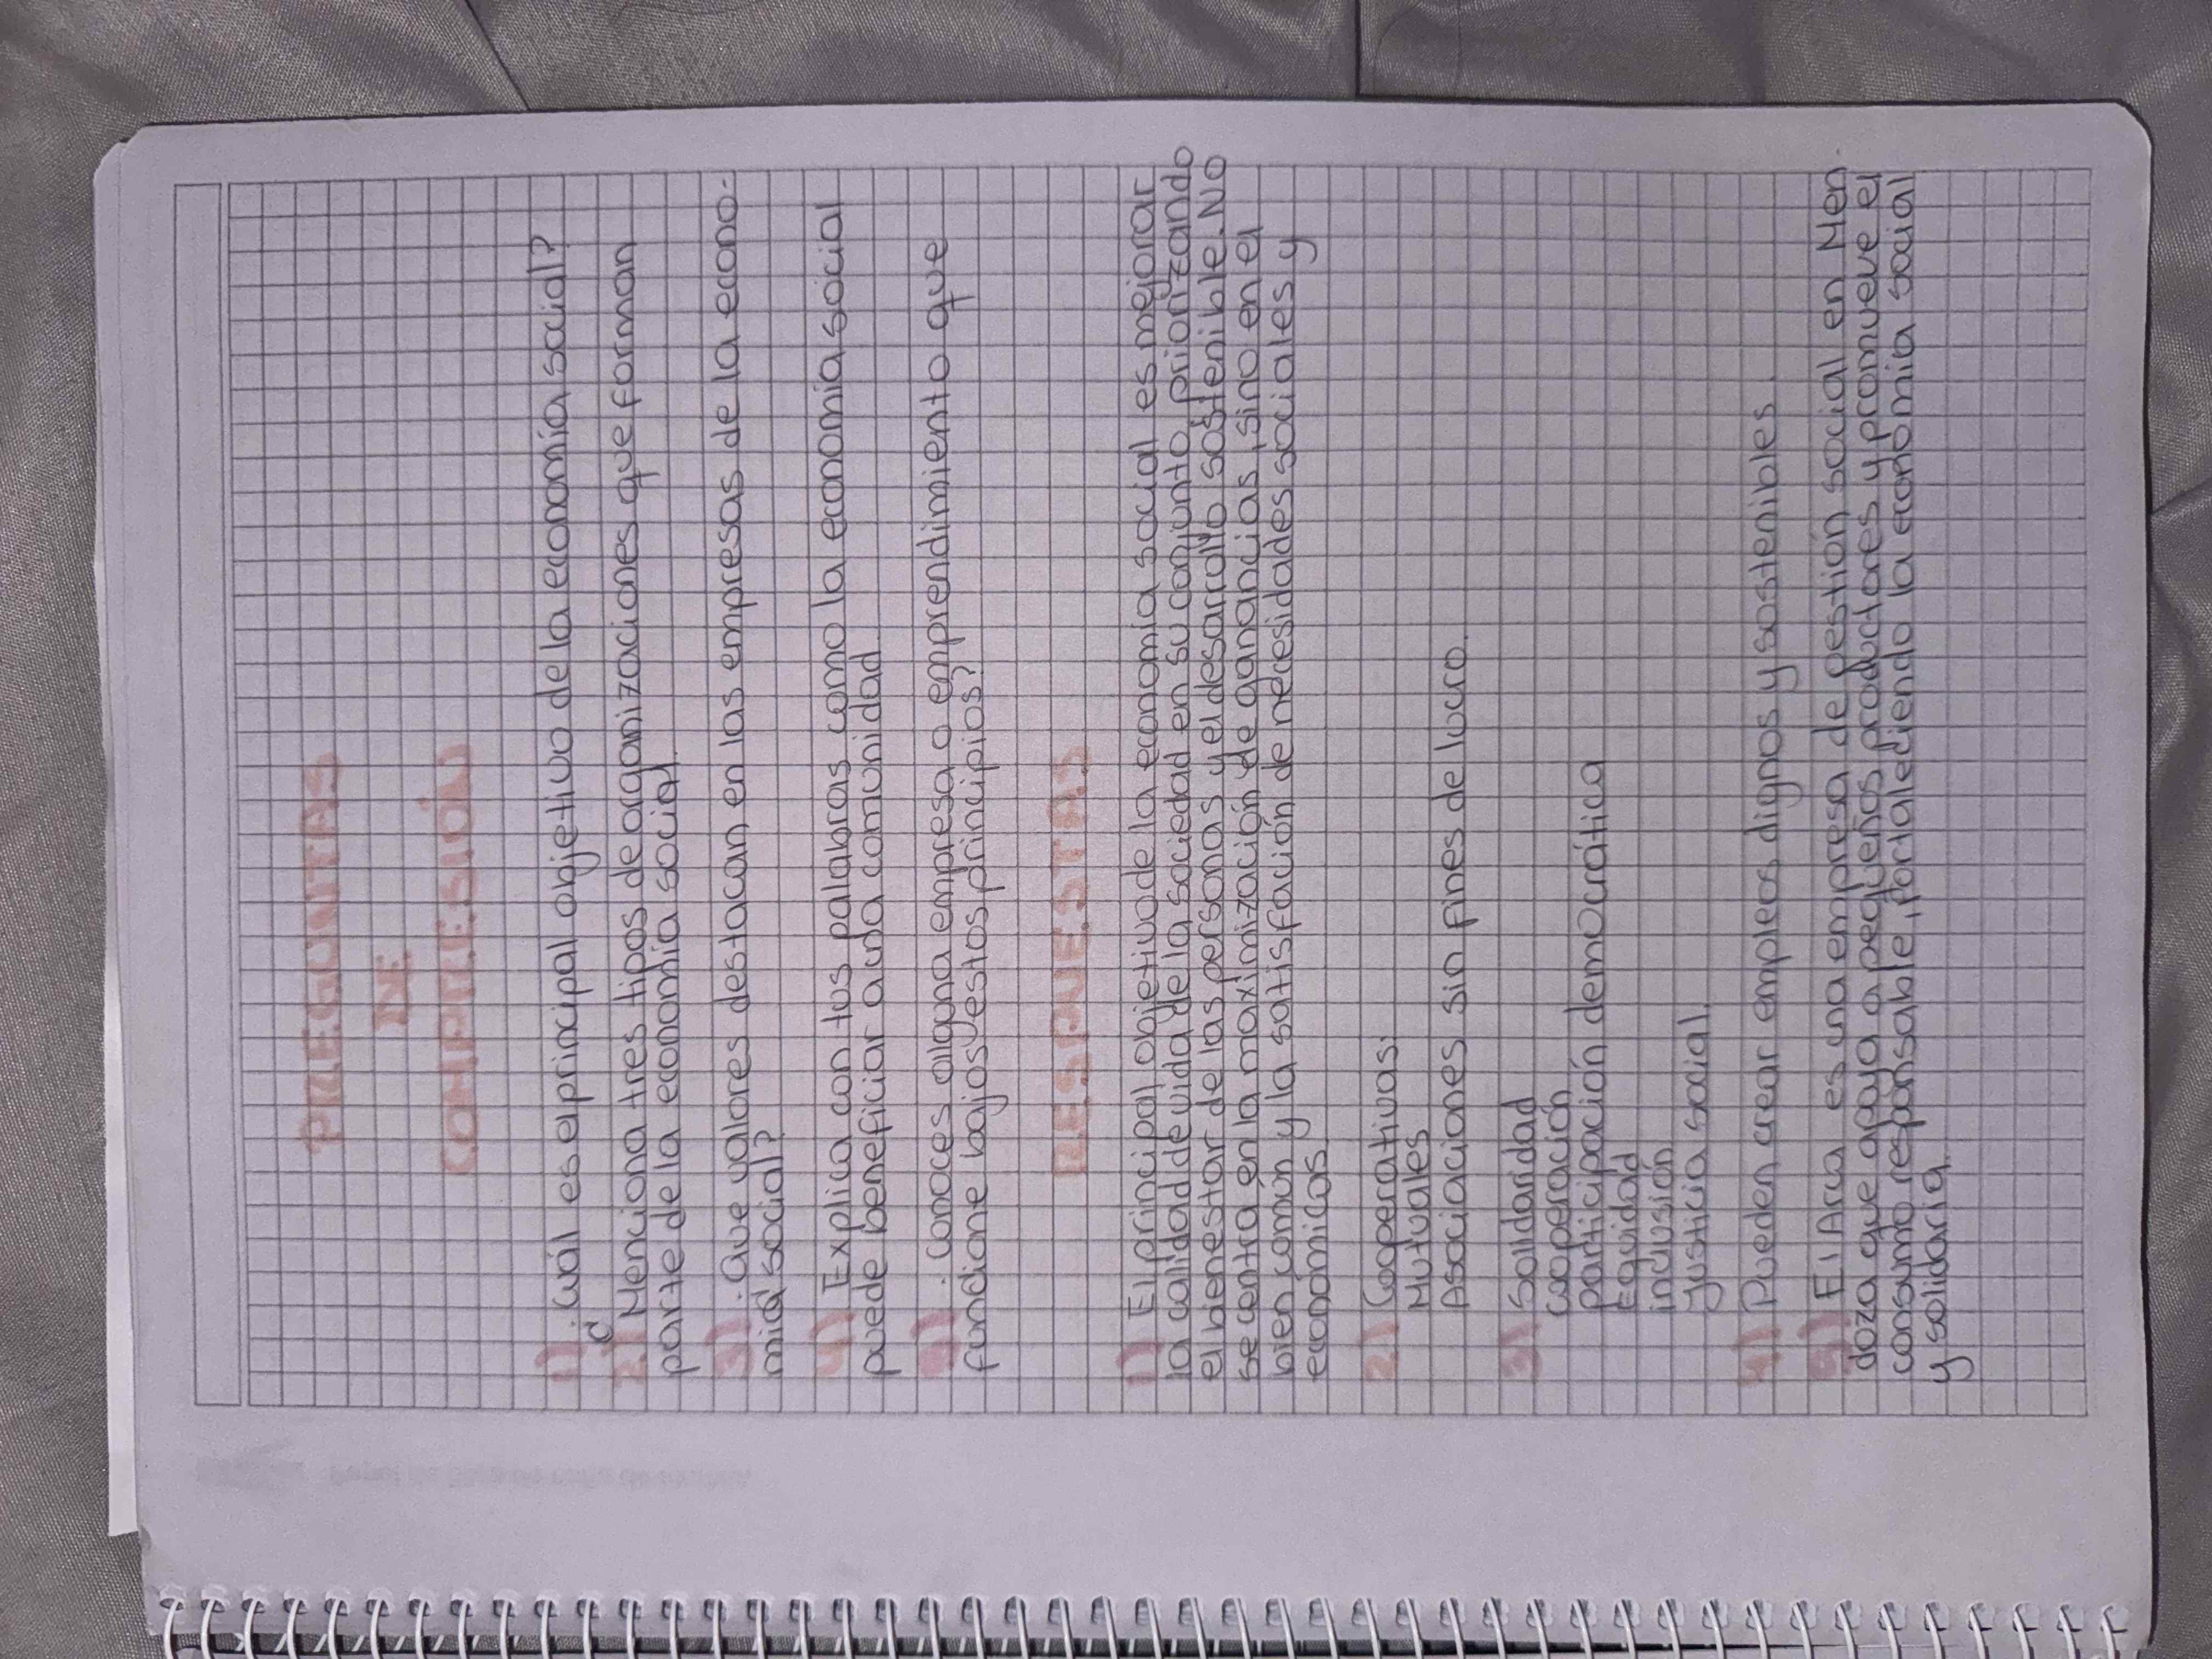 PREGUNTAS
DE
COMPRESIÓN
1) ¿Cuál es el principal objetivo de la economía social?
2) Menciona tres tipos de organizaciones que forman
parte de la economía social.
3) ¿Que valores destacan en las empresas de la econo-
mia social?
4) Explica con tus palabras como la economía social
puede beneficiar a una comunidad.
5) ¿conoces alguna empresa o emprendimiento que
funcione bajos estos principios?
RESPUESTAS
1) El principal objetivo de la economia social es mejorar
la calidad de vida de la sociedad en su conjunto, priorizando
el bienestar de las personas y el desarrollo sostenible. No
se centra en la maximización de ganancias, sino en el
bien común y la satisfación de necesidades sociales y
económicas.
2) Cooperativas.
Mutuales
Asociaciones sin fines de lucro.
3) Solidaridad
cooperación
participación democrática
Equidad
inclusión
Justicia social.
4) Pueden crear empleos dignos y sostenibles.
5) El Arca es una empresa de gestión social en Men
doza que apoya a pequeños productores y promueve el
consumo responsable, fortaleciendo la economia social
y solidaria.